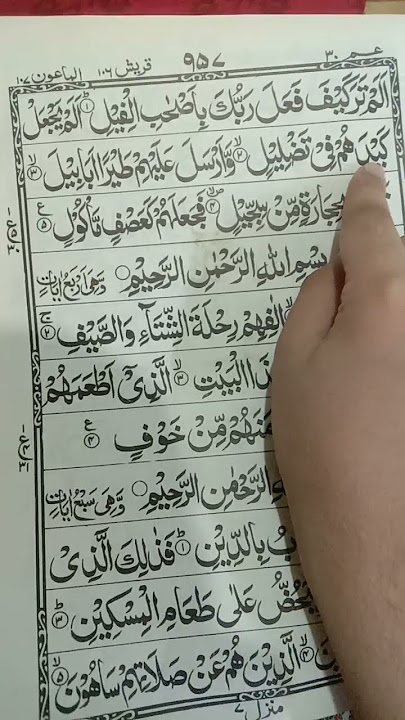 عم ٣٠ ٩٥٧ قريش ١٠٦ الماعون ١٠٧
اَلَمْ تَرَ كَيْفَ فَعَلَ رَبُّكَ بِاَصْحٰبِ الْفِيْلِ ① اَلَمْ يَجْعَلْ
كَيْدَهُمْ فِيْ تَضْلِيْلٍ ② وَّاَرْسَلَ عَلَيْهِمْ طَيْرًا اَبَابِيْلَ ③
بِحِجَارَةٍ مِّنْ سِجِّيْلٍ ④ فَجَعَلَهُمْ كَعَصْفٍ مَّاْكُوْلٍ ⑤
بِسْمِ اللّٰهِ الرَّحْمٰنِ الرَّحِيْمِ وَهِيَ اَرْبَعُ اٰيَاتٍ
اٖلٰفِهِمْ رِحْلَةَ الشِّتَآءِ وَالصَّيْفِ ②
الْبَيْتِ ③ الَّذِيْٓ اَطْعَمَهُمْ
مِّنْ خَوْفٍ ④
الرَّحْمٰنِ الرَّحِيْمِ وَّهِيَ سَبْعُ اٰيَاتٍ
بِالدِّيْنِ ① فَذٰلِكَ الَّذِيْ
عَلٰى طَعَامِ الْمِسْكِيْنِ ③
④ الَّذِيْنَ هُمْ عَنْ صَلَاتِهِمْ سَاهُوْنَ ⑤
منزل ٧